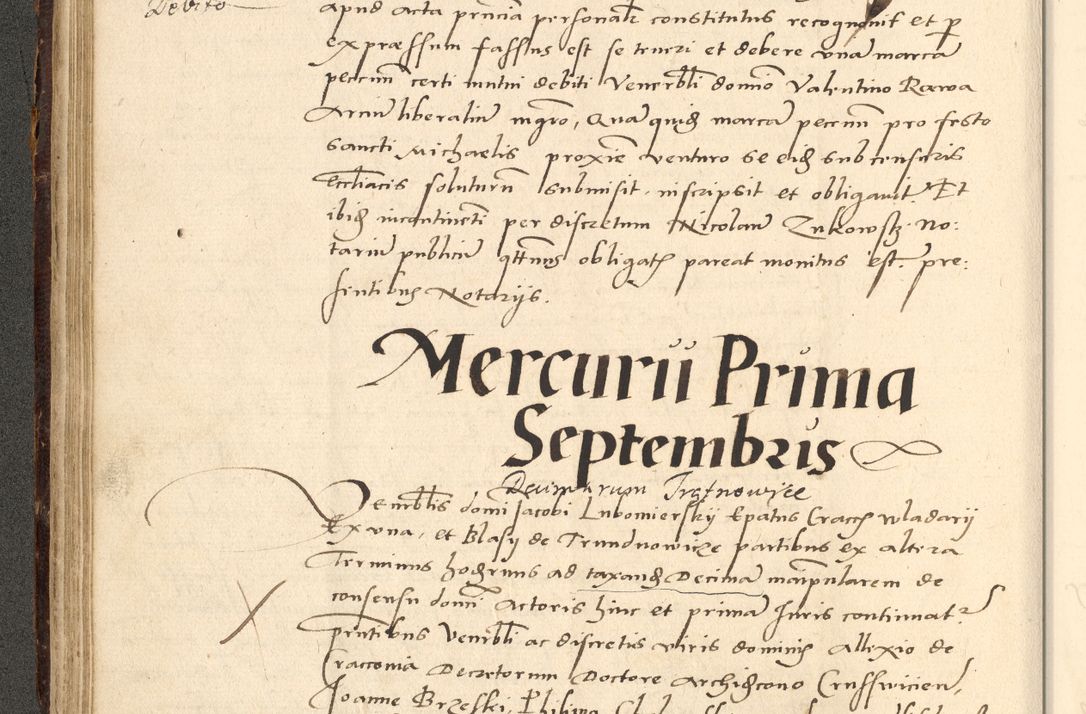 Debito
apud acta pñcia personalr constitutus recognovit et p
expressum fassus est se teneri et debere una marca
pecun certi mutui debiti Venerbli domio Valentino Rawa
Artiu liberaliu mgro, Qua quid marca pecun pro festo
sancti Michaelis proxie venturo se eid sub censuris
Eccliacis soluturu submisit inscripsit et obligavit. Et
ibid incontineti per discretum Nicolau Zukowsk No:
tariu publicu obligats pareat monitus est. pre:
sentibus Notarijs.
Mercurii Prima
Septembris
Decimarum
Venerblis domi Jacobi Lubomierskij Epatus Cracc wladarij
Ex una, et Blasij de Trundnowicze partibus ex altera
Terminus hodrnus ad taxand Decima manipularem de
consensu domi Actoris hinc et prima Juris continuatr
pntibus Venerbli ac discretis viris dominis Allexio de
Cracconia Decretorum Doctore Archidcono Crusswicien,
Joanne Brzeski, Philippo